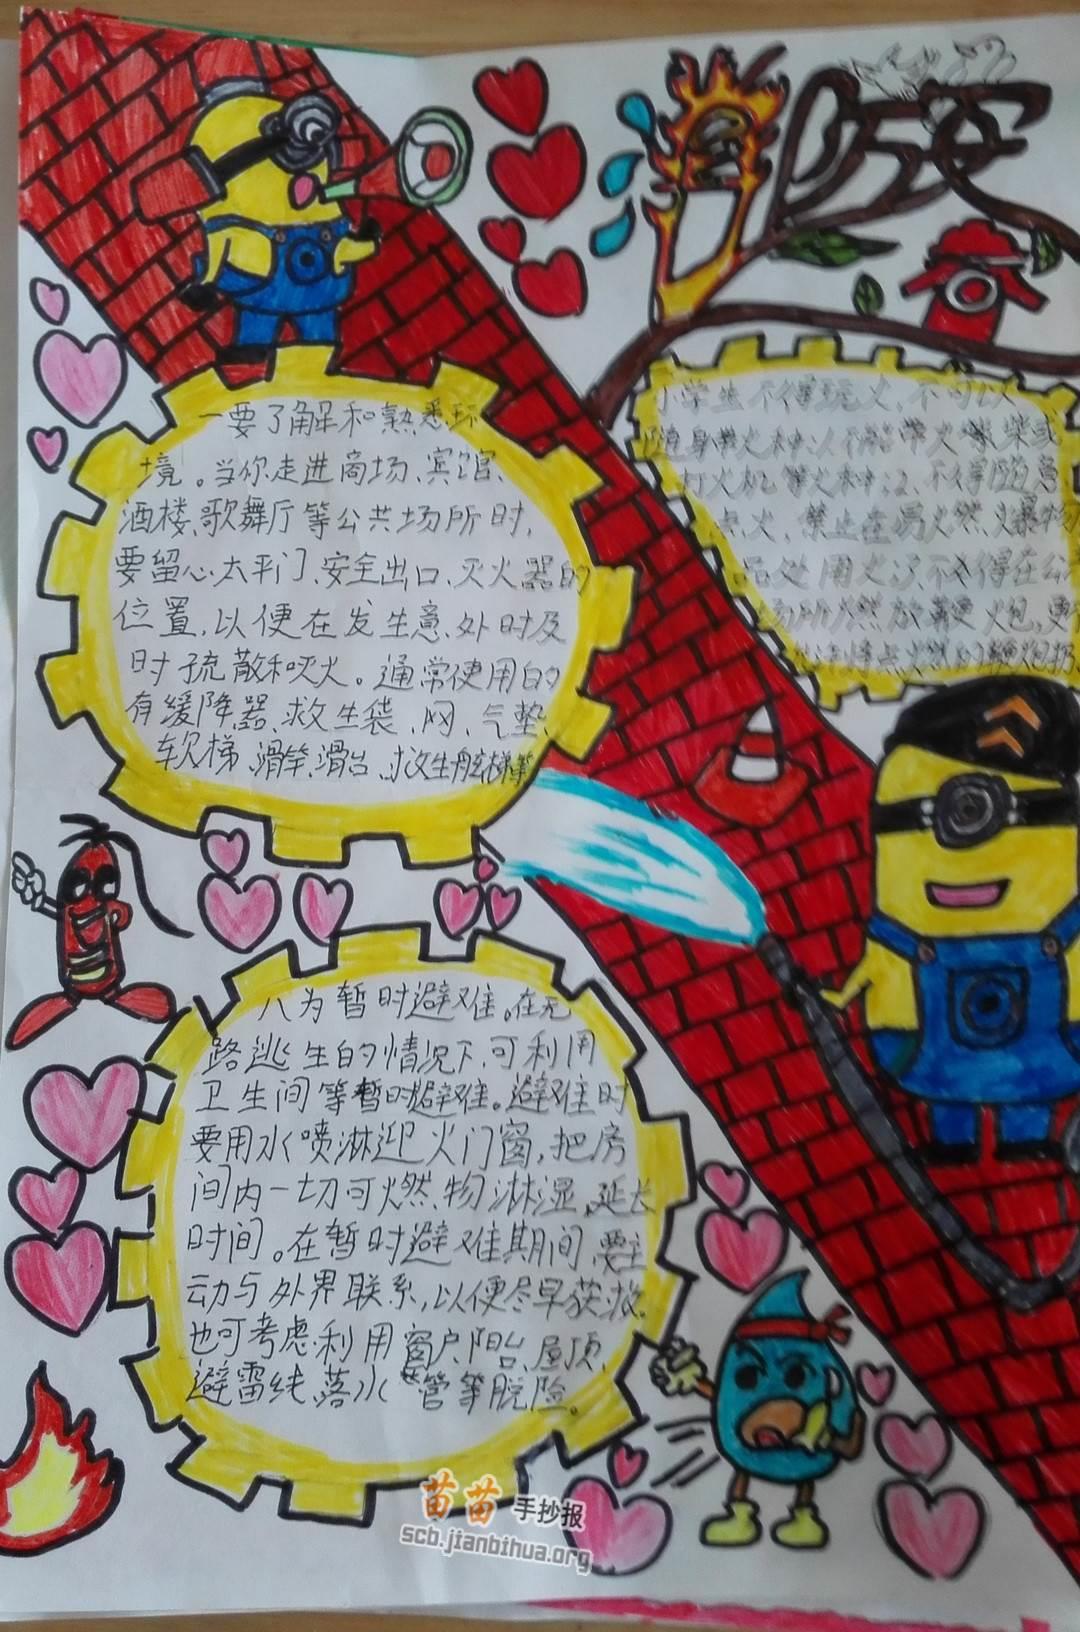 消防安
一要了解和熟悉环
境。当你走进商场、宾馆、
酒楼、歌舞厅等公共场所时,
要留心太平门、安全出口、灭火器的
位置,以便在发生意外时及
时疏散和灭火。通常使用的
有缓降器、救生袋、网、气垫、
软梯、滑竿、滑台、救生舷梯等
小学生不得玩火,不可以
随身带火种:1、不得带火柴或
打火机等火种;2、不得随意
点火,禁止在易火燃、火爆物
品处用火;3、不得在公共
场所燃放鞭火包,更
八为暂时避难。在无
路逃生的情况下,可利用
卫生间等暂时避难。避难时
要用水喷淋迎火门窗,把房
间内一切可燃物淋湿,延长
时间。在暂时避难期间,要主
动与外界联系,以便尽早获救。
也可考虑利用窗户、阳台、屋顶、
避雷线、落水管等脱险。
苗苗手抄报
scb.jianbihua.org